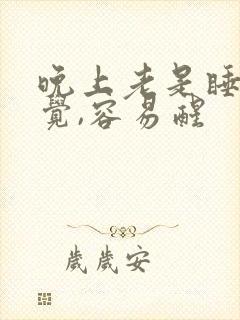 晚上老是睡
覺,容易醒
歲歲安